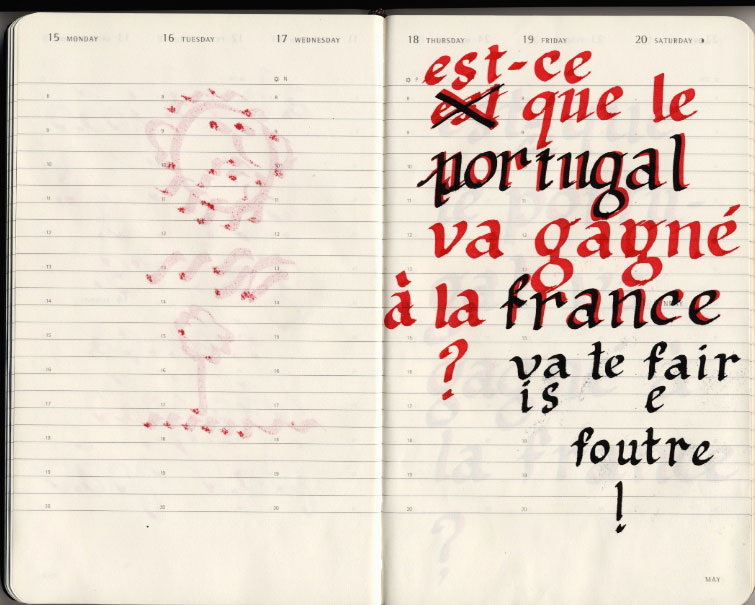 15 MONDAY 16 TUESDAY 17 WEDNESDAY
18 THURSDAY 19 FRIDAY 20 SATURDAY
est-ce
est que le
portugal
va gagné
à la france
? va te fair
is e
foutre
!
MAY